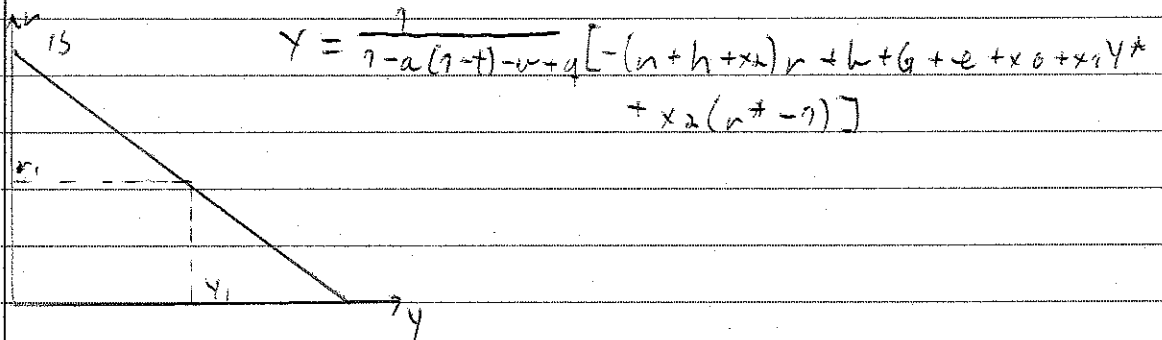 r
IS
Y = 1 / (1-a(1-t)-v+q) [-(n+h+x2)r + h + G + e + x0 + x1Y*
+ x2(r* - 1)]
r1
Y1
Y